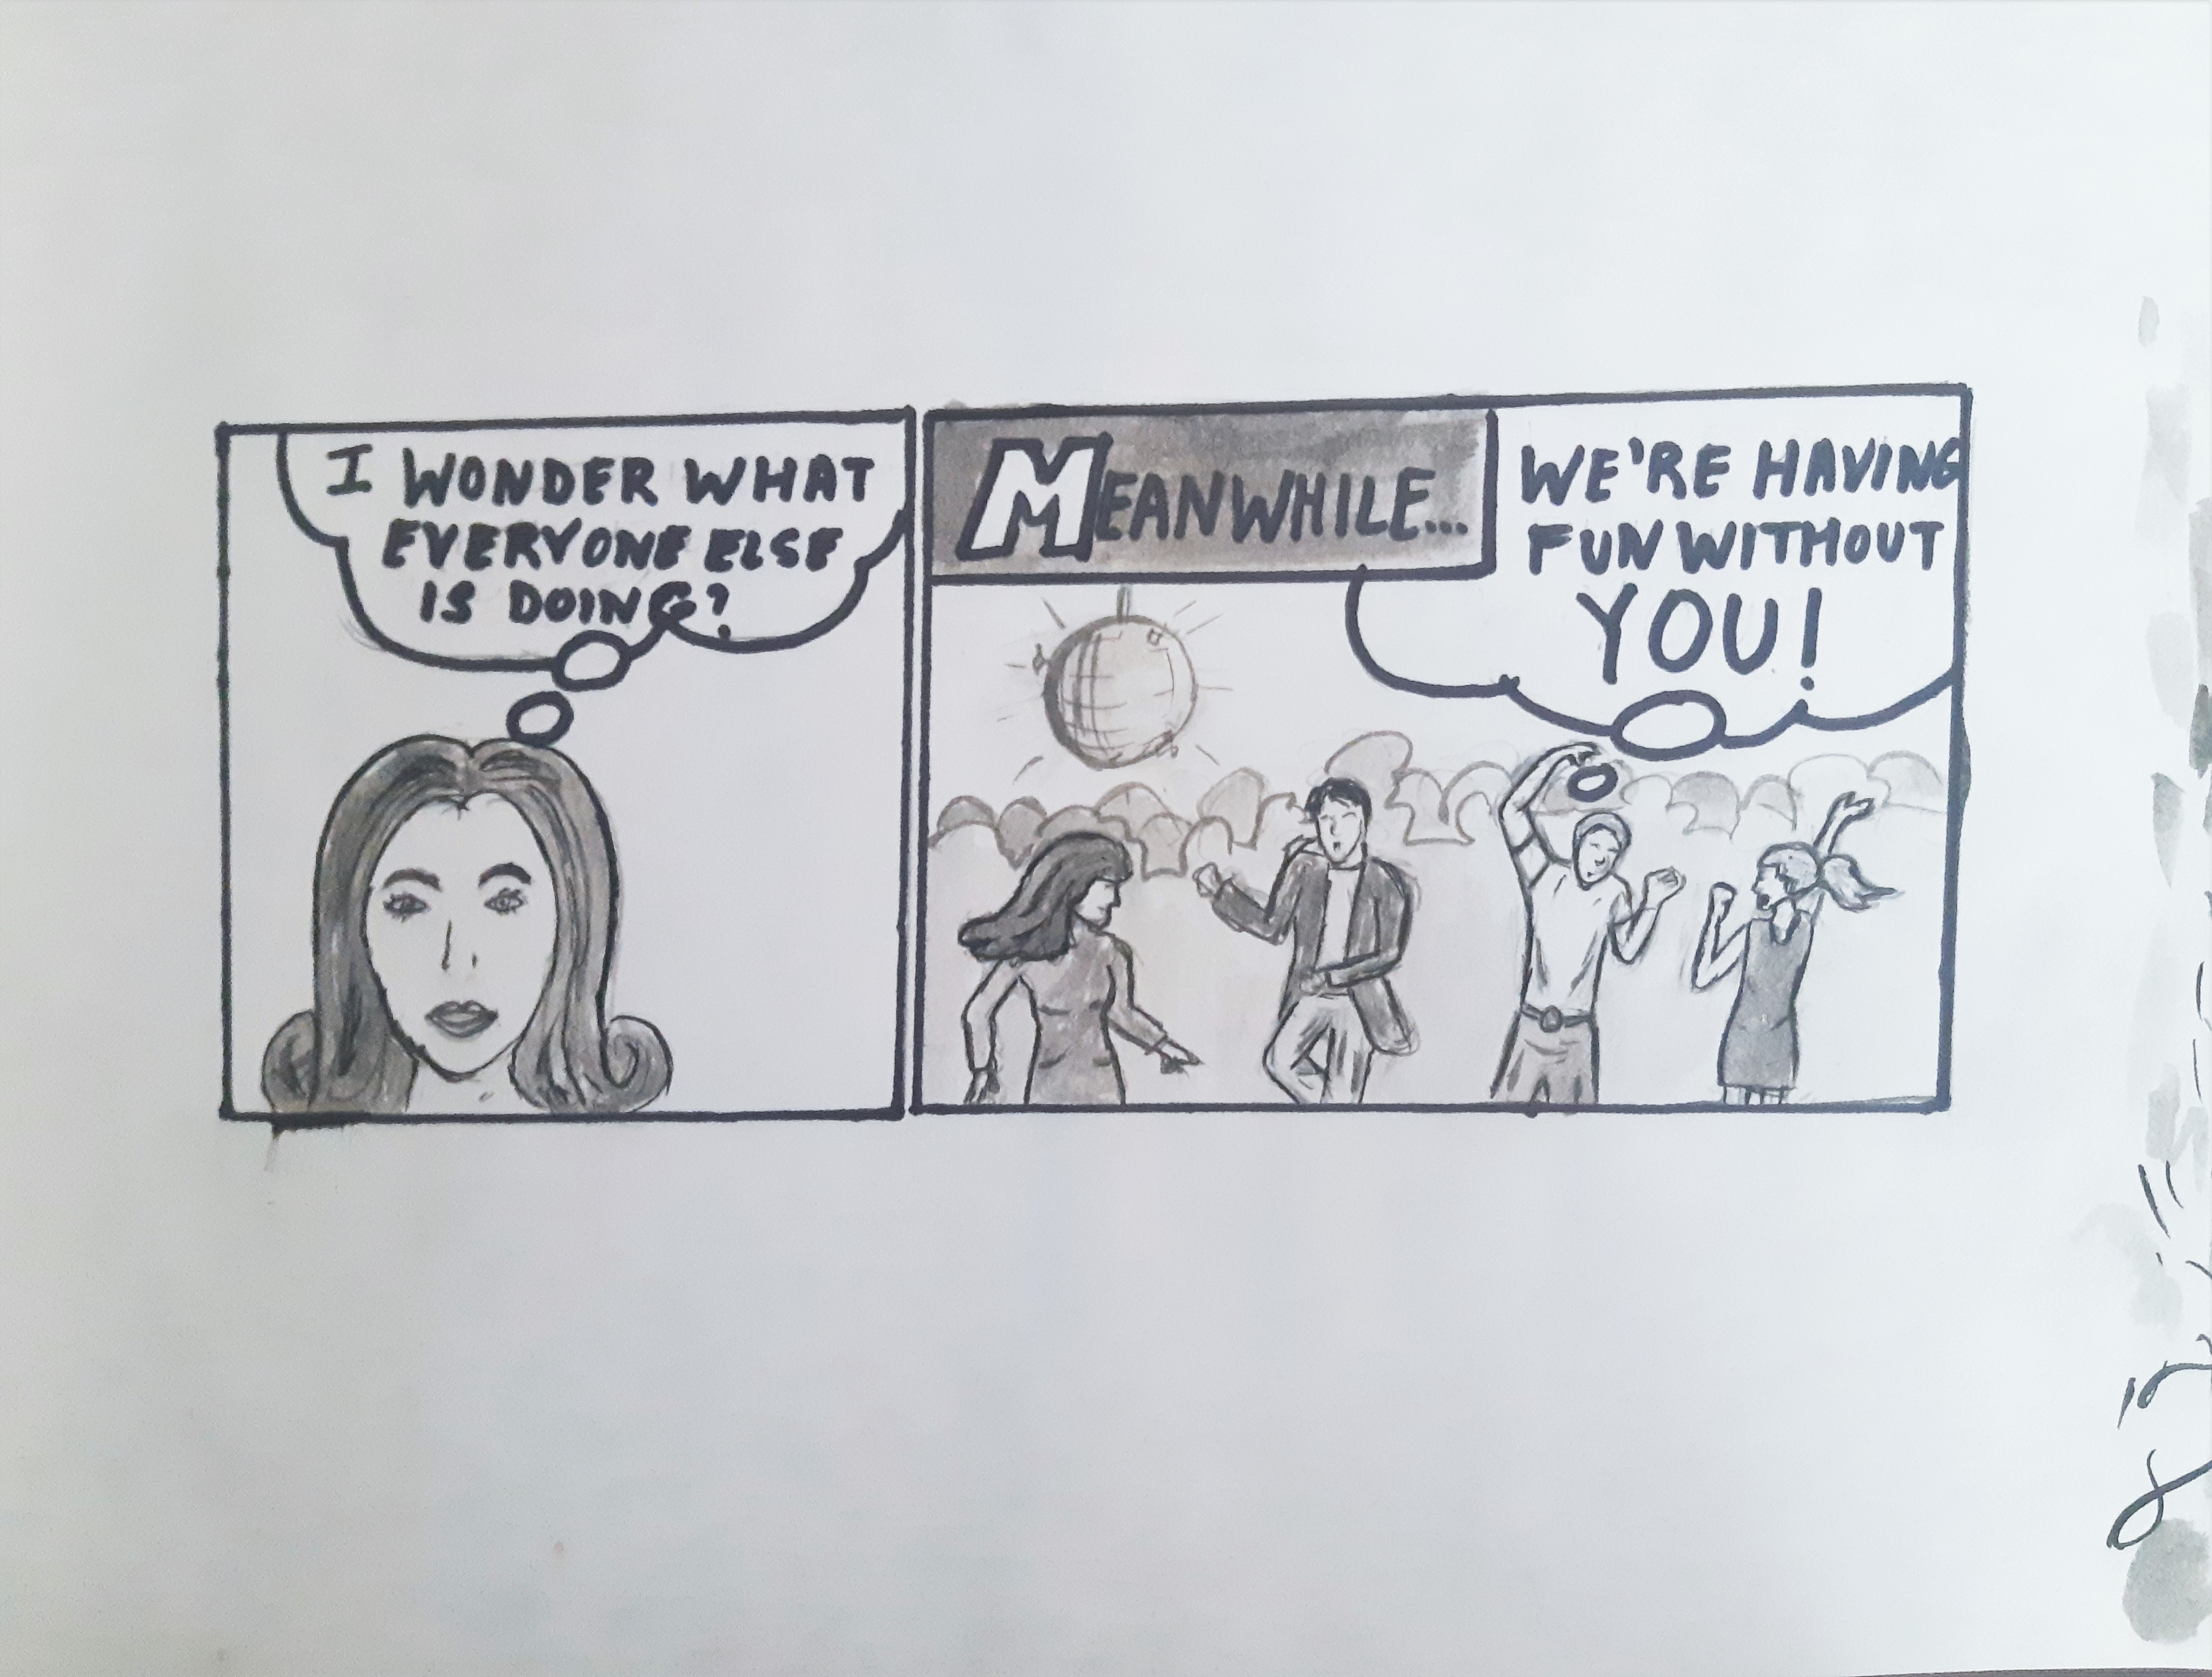 I WONDER WHAT
EVERYONE ELSE
IS DOING?
MEANWHILE...
WE'RE HAVING
FUN WITHOUT
YOU!